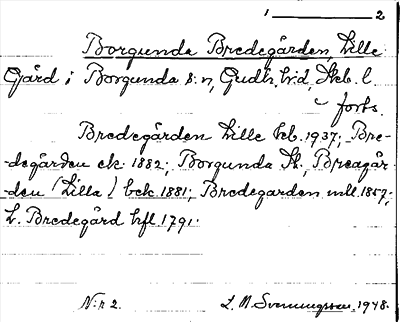 1 ——— 2
Borgunda Bredegården, Lille
Gård i Borgunda s:n, Gudh. hrd, Skb. l.
forts.
Bredegården Lille kb. 1937; Bre-
degården ek. 1882; Borgunda St., Bredgår-
den (Lilla) bck. 1881; Bredegården mll. 1857;
L. Bredegård hfl. 1791.
N:r 2.
L. M. Svenungsson, 1948.